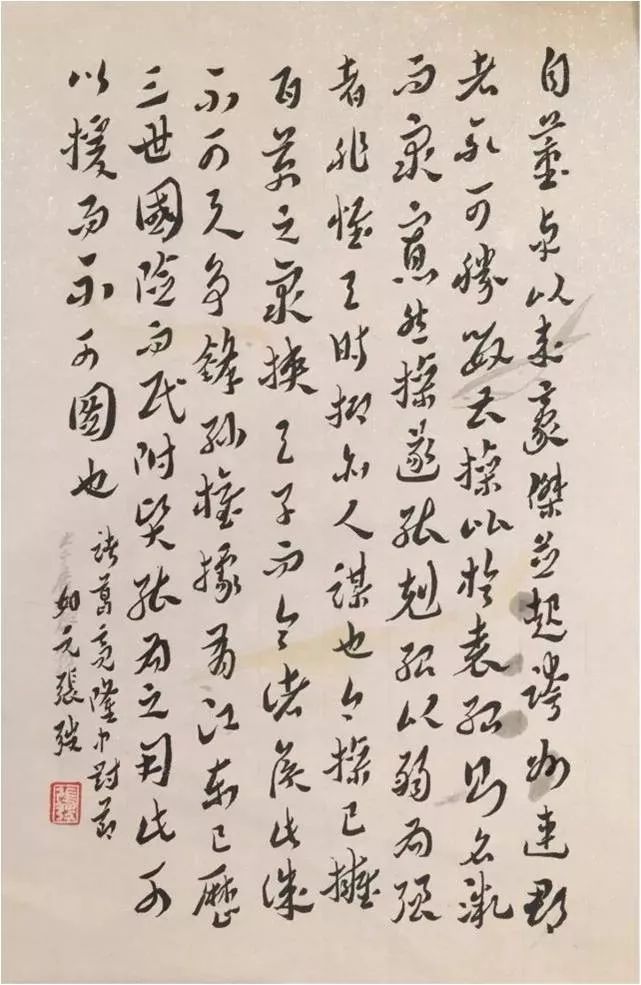 自董卓以來豪傑並起跨州連郡
者不可勝數曹操比於袁紹則名微
而眾寡然操遂能剋紹以弱為强
者非惟天時抑亦人謀也今操已擁
百萬之眾挾天子而令諸侯此誠
不可與爭鋒孫權據有江東已歷
三世國險而民附賢能為之用此可
以援而不可圖也
諸葛亮隆中對節
如元張强